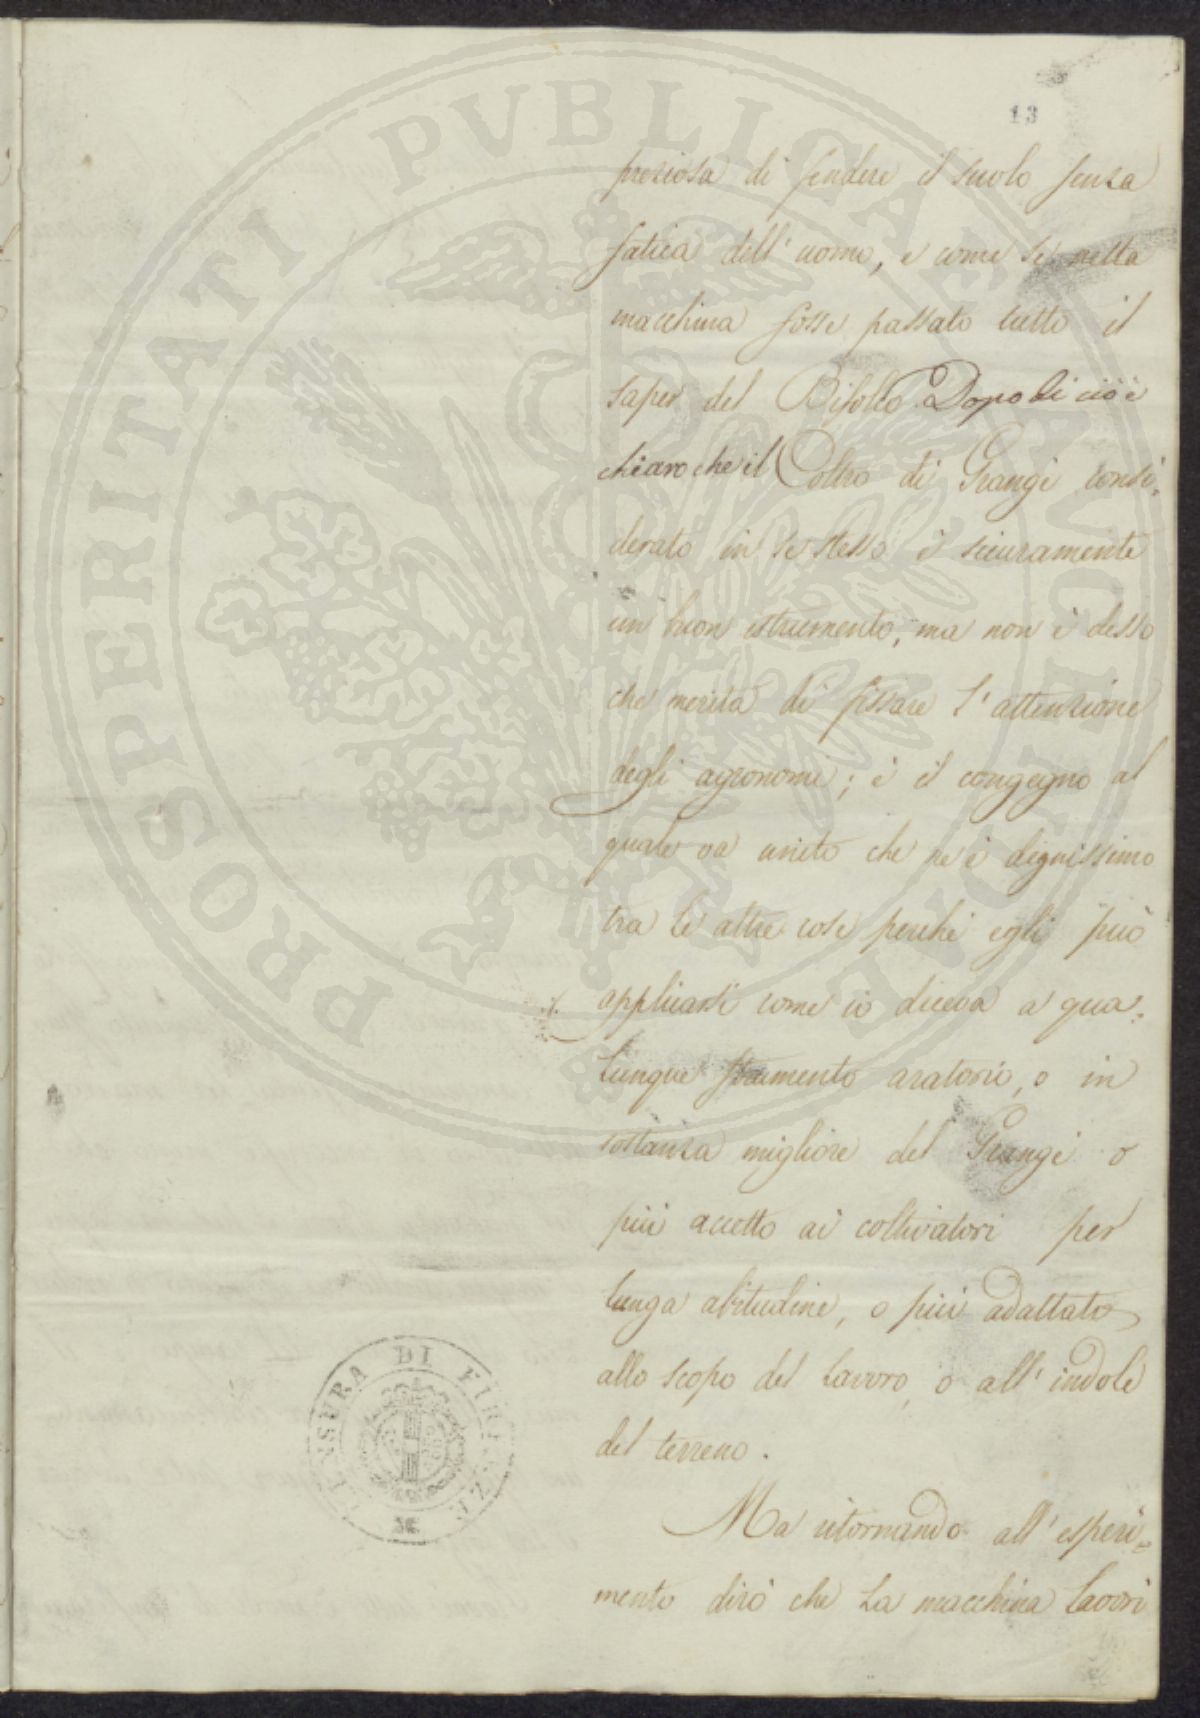 13
preziosa di fendere il suolo senza
fatica dell' uomo, e come se nella
macchina fosse passato tutto il
saper del Bifolco. Dopo di ciò è
chiaro che il Coltro di Grangé consi=
derato in se stesso è sicuramente
un buon istrumento, ma non è desso
che merita di fissare l' attenzione
degli agronomi; è il congegno al
quale va unito che ne è dignissimo
tra le altre cose perchè egli può
applicarsi come io diceva a qua=
lunque strumento aratorio, o in
sostanza migliore del Grangé o
più accetto ai coltivatori per
lunga abitudine, o più adattato
allo scopo del lavoro, o all' indole
del terreno.
Ma ritornando all' esperi=
mento dirò che la macchina lavorò
PROSPERITATI PVBLICAE AVGENDAE
CENSURA DI FIRENZE